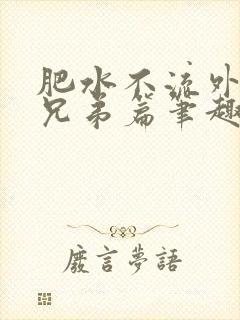 肥水不流外
兄弟篇笔趣
廢言夢語